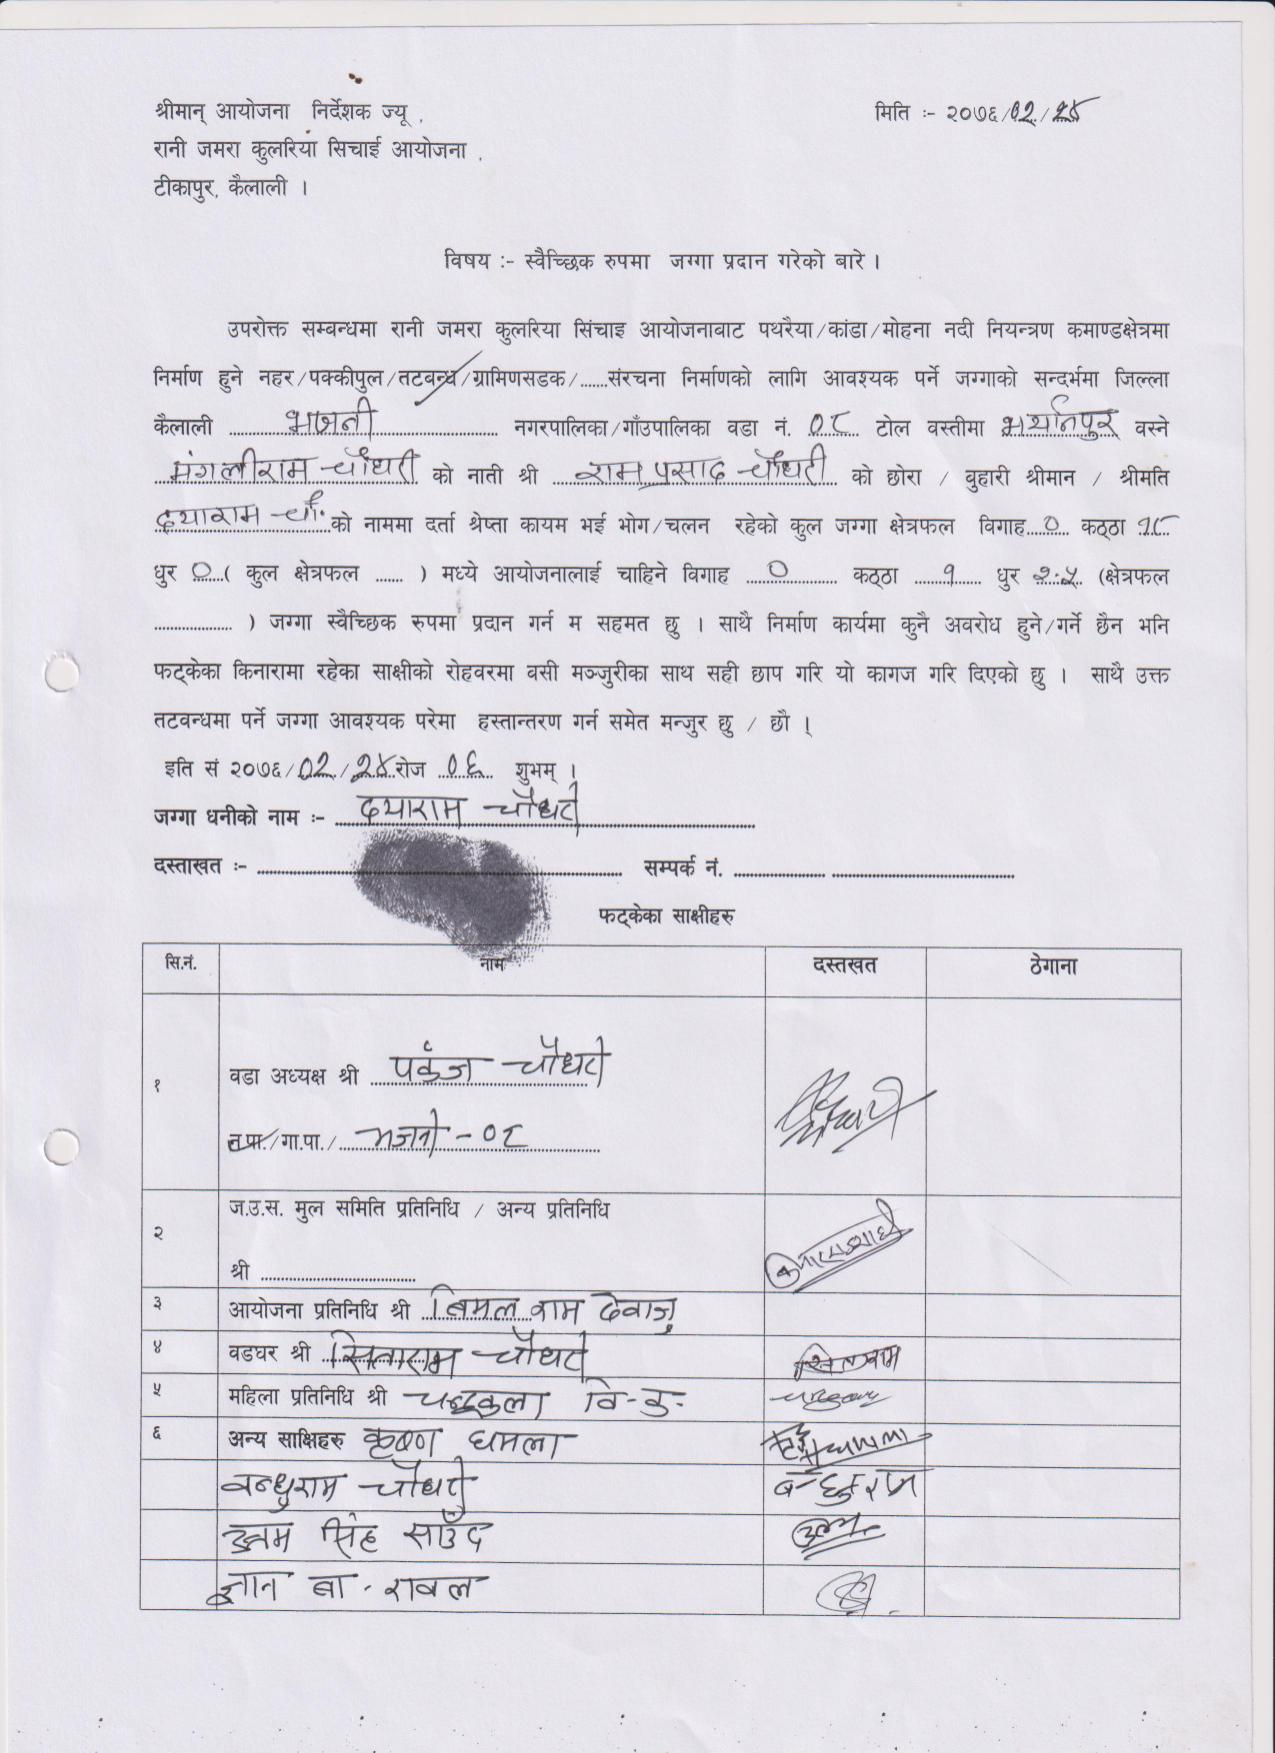 श्रीमान् आयोजना निर्देशक ज्यू , मिति :- २०७६/०२/२४
रानी जमरा कुलरिया सिचाई आयोजना ,
टीकापुर, कैलाली ।
विषय :- स्वैच्छिक रुपमा जग्गा प्रदान गरेको बारे ।
उपरोक्त सम्बन्धमा रानी जमरा कुलरिया सिंचाइ आयोजनाबाट पथरैया/कांडा/मोहना नदी नियन्त्रण कमाण्डक्षेत्रमा
निर्माण हुने नहर/पक्कीपुल/तटबन्ध/ग्रामिणसडक/......संरचना निर्माणको लागि आवश्यक पर्ने जग्गाको सन्दर्भमा जिल्ला
कैलाली भजनी नगरपालिका/गाँउपालिका वडा नं. ०८ टोल वस्तीमा वस्ने
मंगलीराम चौधरी को नाती श्री राम प्रसाद चौधरी को छोरा / बुहारी श्रीमान / श्रीमति
दयाराम चौ. को नाममा दर्ता श्रेष्ता कायम भई भोग/चलन रहेको कुल जग्गा क्षेत्रफल विगाह ० कठ्ठा १८
धुर ० ( कुल क्षेत्रफल ...... ) मध्ये आयोजनालाई चाहिने विगाह ० कठ्ठा १ धुर २.५ (क्षेत्रफल
.................... ) जग्गा स्वैच्छिक रुपमा प्रदान गर्न म सहमत छु । साथै निर्माण कार्यमा कुनै अवरोध हुने/गर्ने छैन भनि
फट्केका किनारामा रहेका साक्षीको रोहवरमा वसी मञ्जुरीका साथ सही छाप गरि यो कागज गरि दिएको छु । साथै उक्त
तटवन्धमा पर्ने जग्गा आवश्यक परेमा हस्तान्तरण गर्न समेत मन्जुर छु / छौ ।
इति सं २०७६/०२/२४ रोज ०६ शुभम् ।
जग्गा धनीको नाम :- दयाराम चौधरी
दस्ताखत :- .................... सम्पर्क नं. ....................
फट्केका साक्षीहरु
सि.नं. नाम दस्तखत ठेगाना
१ वडा अध्यक्ष श्री पकंज चौधरी
न.पा./गा.पा./ भजनी - ०८
२ ज.उ.स. मुल समिति प्रतिनिधि / अन्य प्रतिनिधि
श्री ....................
३ आयोजना प्रतिनिधि श्री बिमल राम देवाजु
४ वडघर श्री सिताराम चौधरी सिताराम
५ महिला प्रतिनिधि श्री चन्द्रकुला वि.क.
६ अन्य साक्षिहरु कृष्ण धमला
बन्धुराम चौधरी बन्धुराम
उत्तम सिंह साउँद
ज्ञान बा. रावल